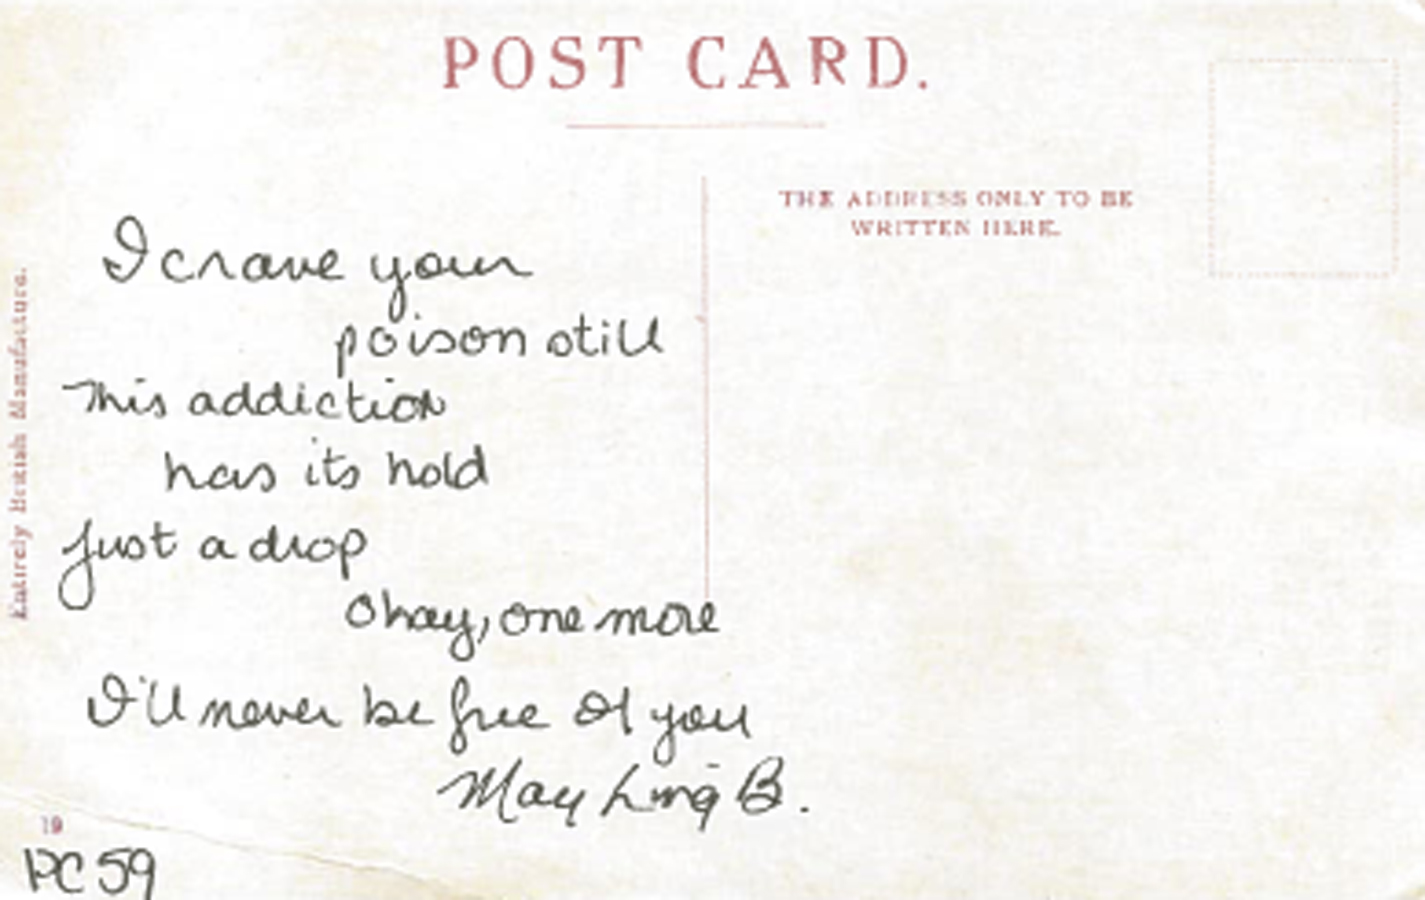 POST CARD.
THE ADDRESS ONLY TO BE
WRITTEN HERE.
Entirely British Manufacture.
I crave your
poison still
This addiction
has its hold
Just a drop
Okay, one more
I'll never be free of you
May Ling B.
19
PC 59